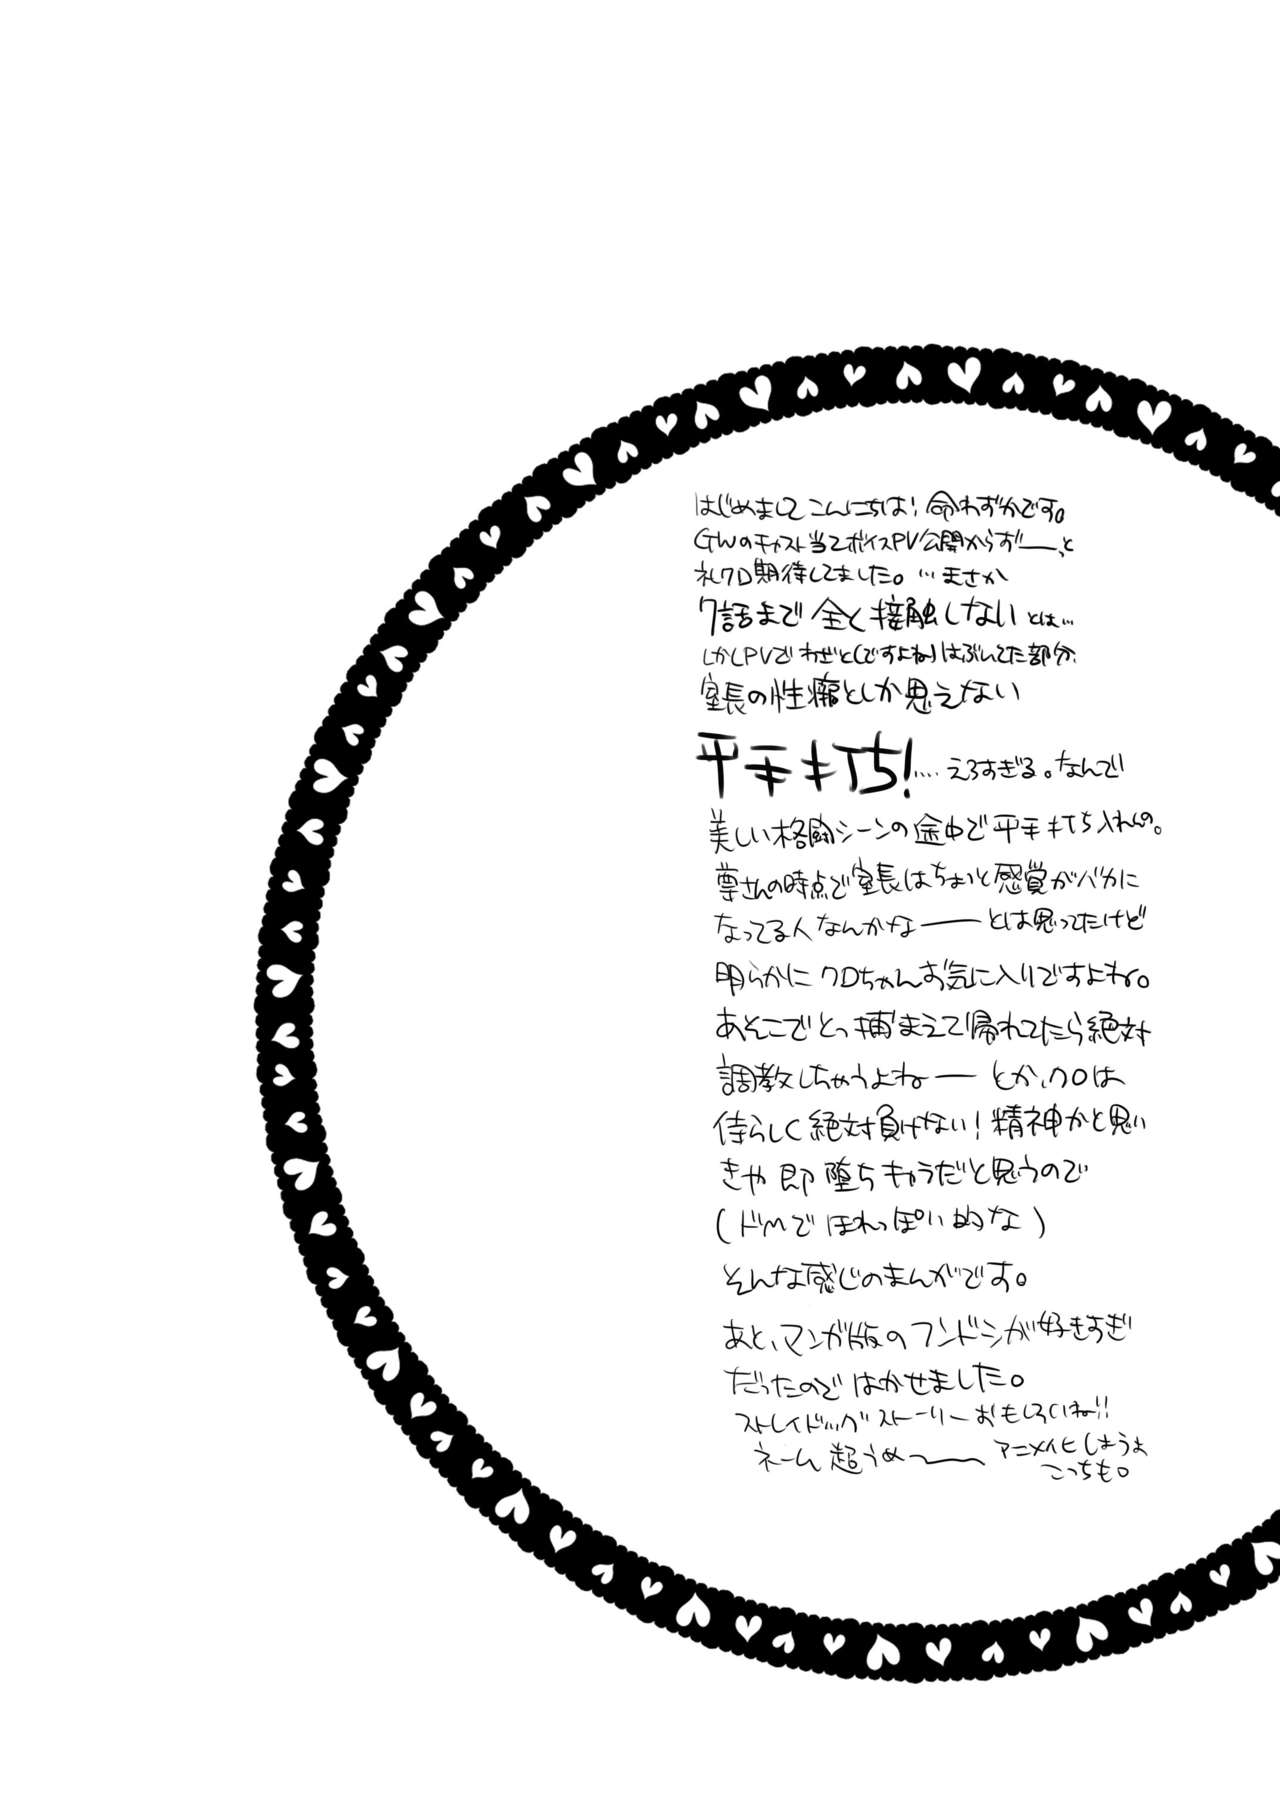 はじめましてこんにちは！命わずかです。
GWのキャスト当てボイスPV公開からずーっと
礼クロ期待してました。…まさか
7話まで全く接触しないとは…
しかしPVでわざと(ですよね)はぶいてた部分、
室長の性癖としか思えない
平手打ち！…. えろすぎる。なんで
美しい格闘シーンの途中で平手打ち入れんの。
尊さんの時点で室長はちょっと感覚がバカに
なってる人なんかなーーとは思ってたけど
明らかにクロちゃんお気に入りですよね。
あそこでとっ捕まえて帰れてたら絶対
調教しちゃうよねーーとか、クロは
侍らしく絶対負けない！精神かと思い
きや即堕ちキャラだと思うので
(ドMでほれっぽい的な)
そんな感じのまんがです。
あと、マンガ版のフンドシが好きすぎ
だったのではかせました。
ストレイドッグストーリーおもしろいね!!
ネーム超うめ〜〜 アニメイヒしようよ
こっちも。